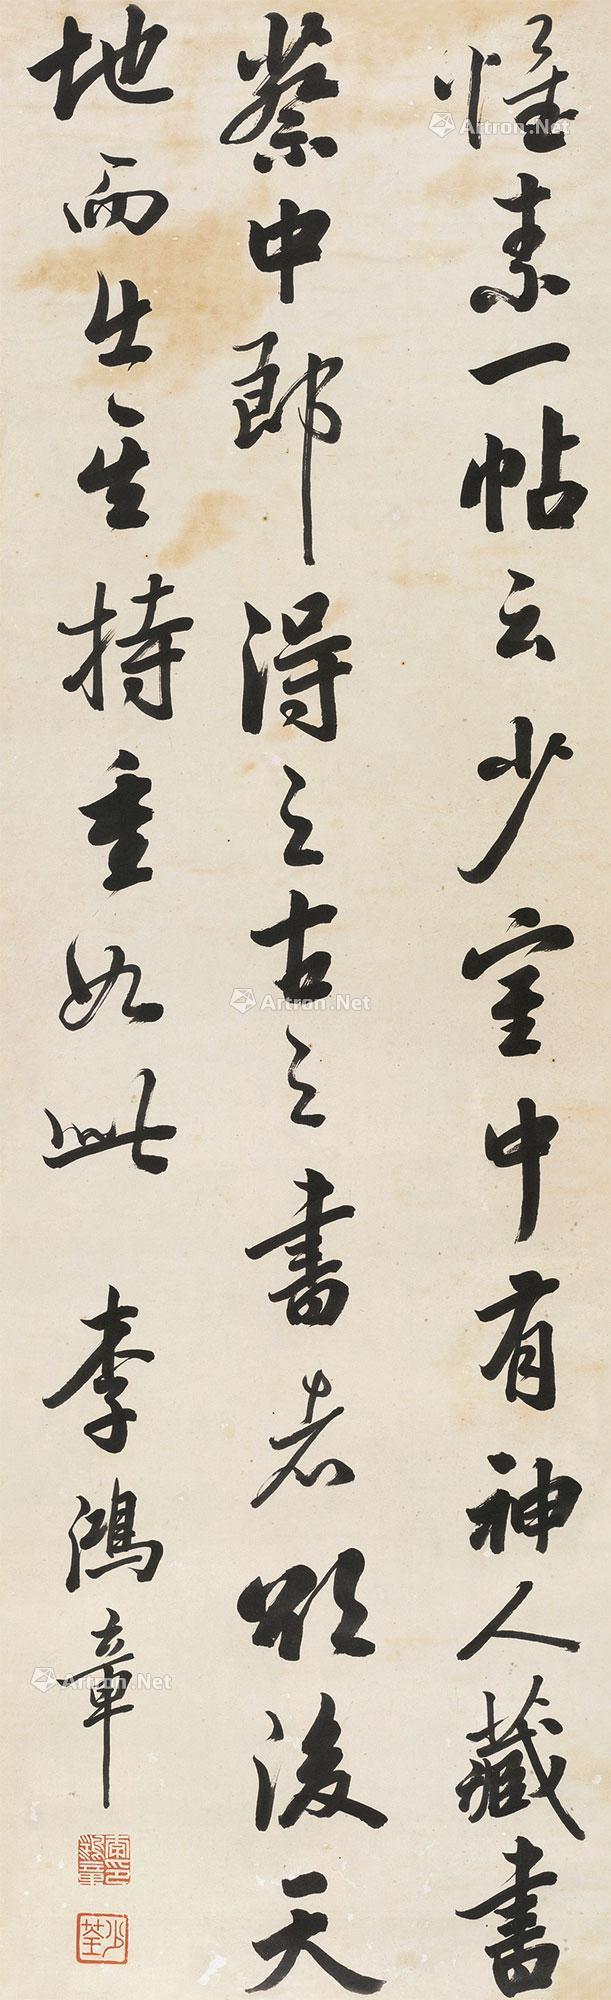 惟素一帖云少室中有神人藏書
蔡中郎得之古之書者欲後天
地而生其持重如此
李鴻章
Artron.Net
Artron.Net
Artron.Net
少荃